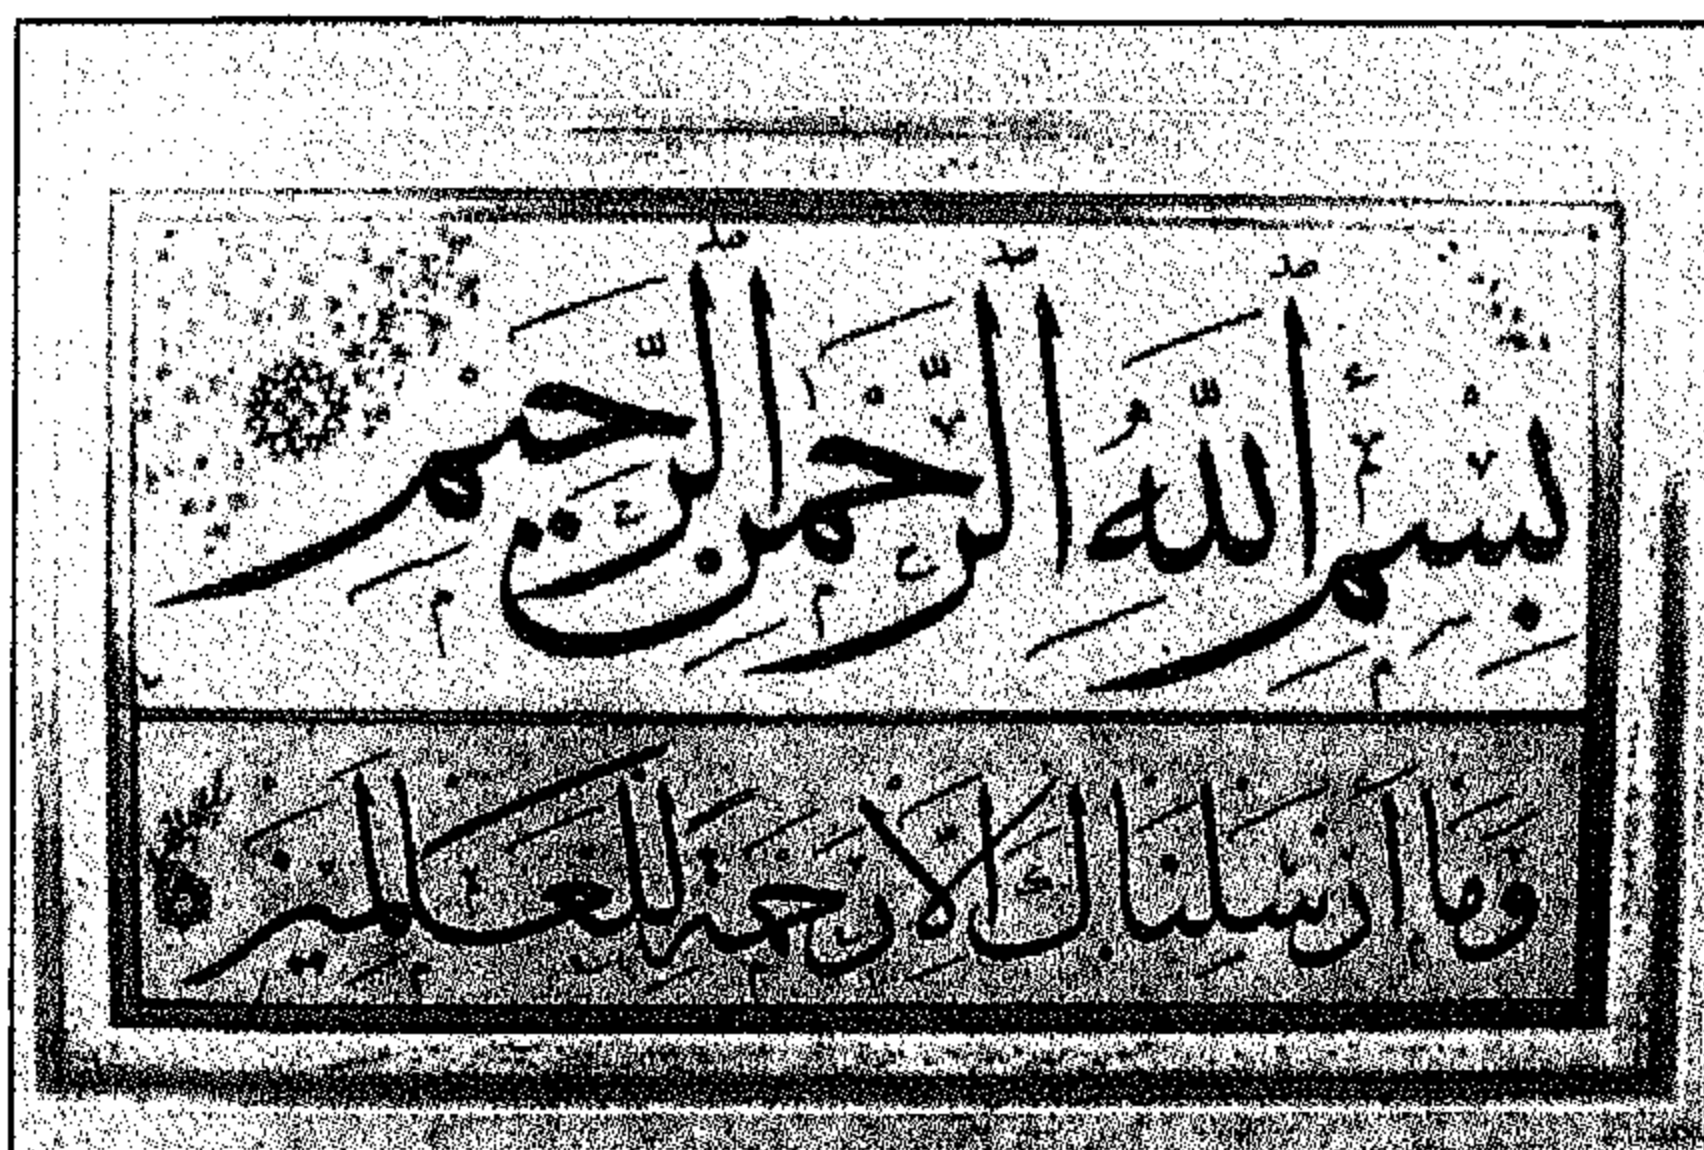 بِسْمِ اللّٰهِ الرَّحْمٰنِ الرَّحِيمِ
وَمَا أَرْسَلْنَاكَ إِلَّا رَحْمَةً لِلْعَالَمِينَ